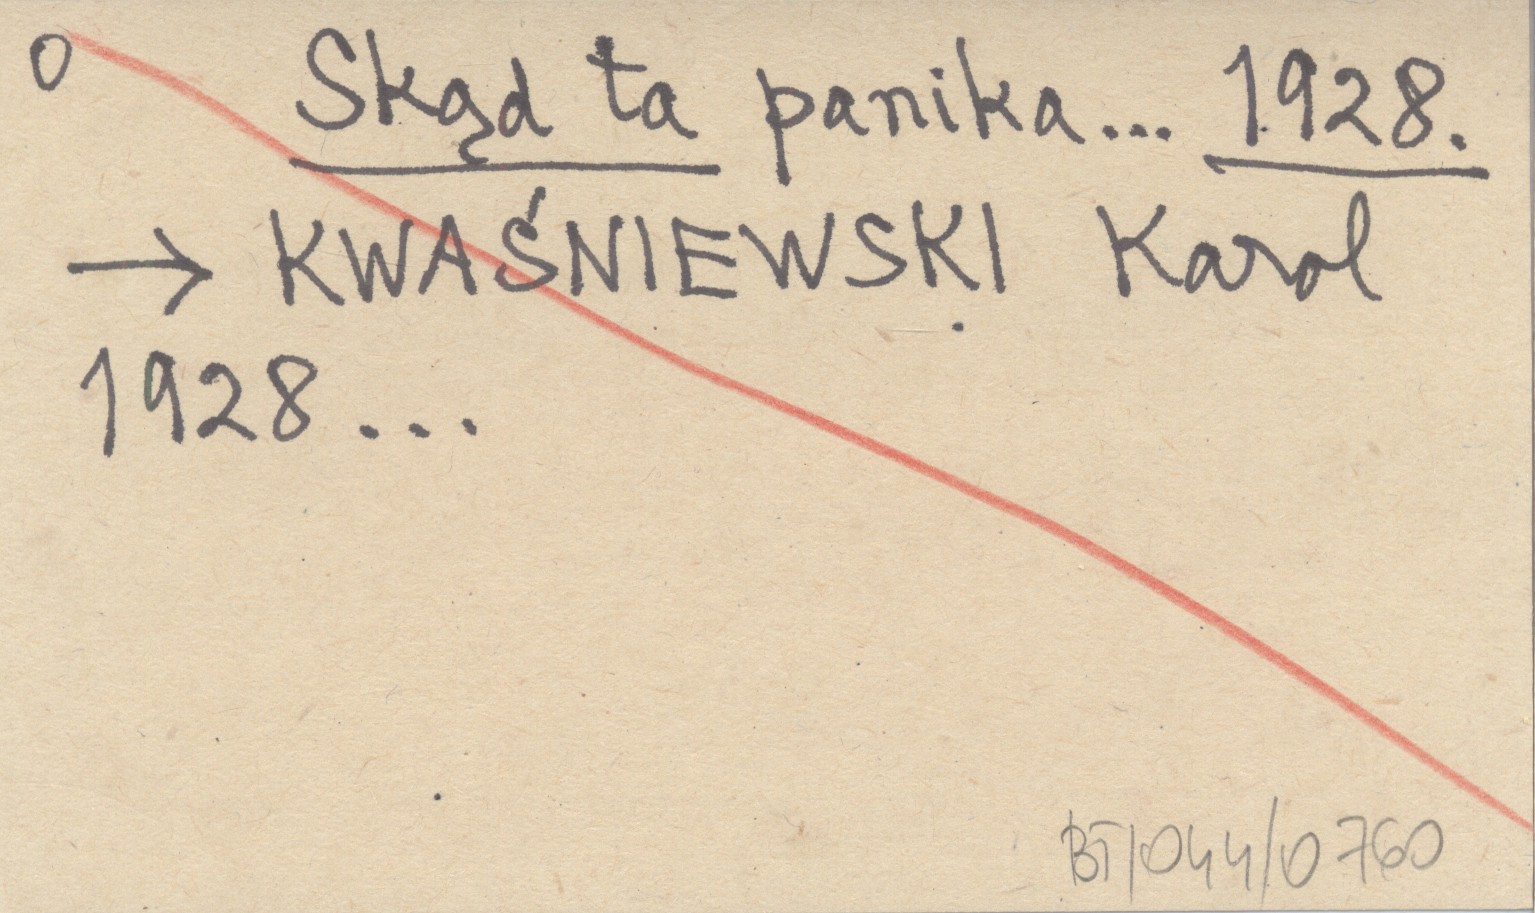 0 Skąd ta panika... 1928.
→ KWAŚNIEWSKI Karol
1928...
BT/044/0760